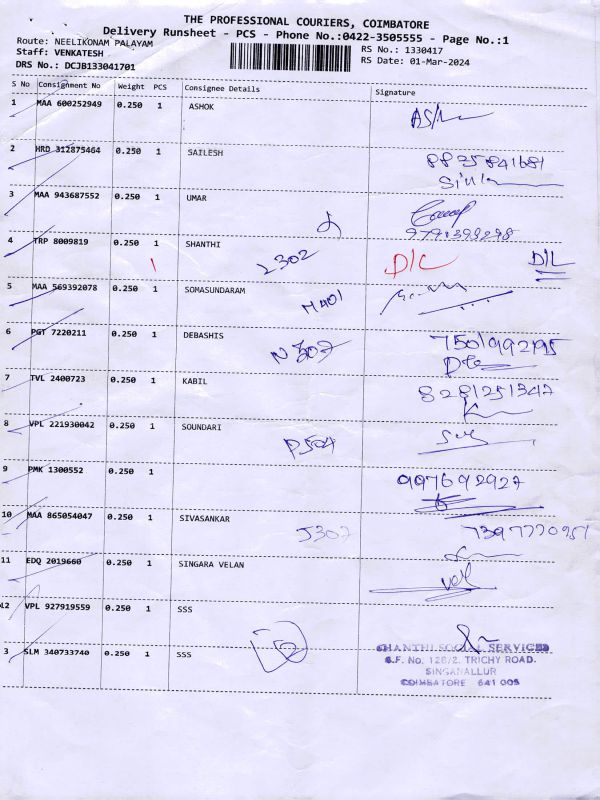 THE PROFESSIONAL COURIERS, COIMBATORE
Delivery Runsheet - PCS - Phone No.:0422-3505555 - Page No.:1
Route: NEELIKONAM PALAYAM
RS No.: 1330417
Staff: VENKATESH
RS Date: 01-Mar-2024
DRS No.: DCJB133041701
S No Consignment No Weight PCS Consignee Details Signature
1 MAA 600252949 0.250 1 ASHOK
2 HRD 312875464 0.250 1 SAILESH
3 MAA 943687552 0.250 1 UMAR
4 TRP 8009819 0.250 1 SHANTHI 2302 D/C D/L
5 MAA 569392078 0.250 1 SOMASUNDARAM M401
6 PGT 7220211 0.250 1 DEBASHIS N307 7501992195
7 TVL 2400723 0.250 1 KABIL 8281251347
8 VPL 221930042 0.250 1 SOUNDARI P504
9 PMK 1300552 0.250 1 997692927
10 MAA 865054047 0.250 1 SIVASANKAR J307
11 EDQ 2019660 0.250 1 SINGARA VELAN
12 VPL 927919559 0.250 1 SSS
3 SLM 340733740 0.250 1 SSS
SHANTHI SOCIAL SERVICES
S.F. No. 128/2. TRICHY ROAD.
SINGANALLUR
COIMBATORE 641 005